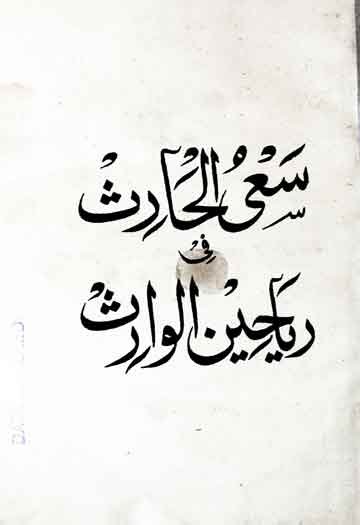 سَعْیُ الحَارِث
فِی
ریَاحِیْن الوارِث